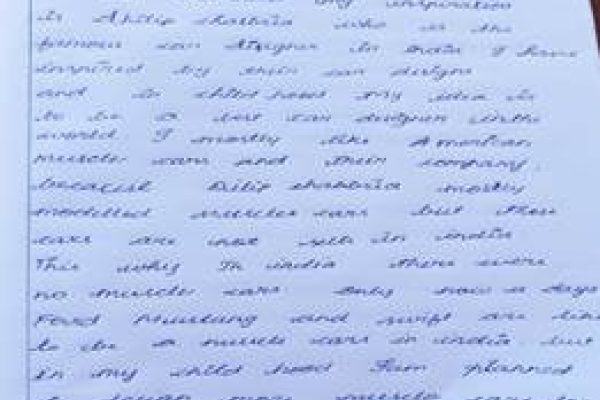 my inspiration
is Dilip chabria who is the
famous car designer in India I have
inspired by their car designs
and in childhood my idea is
to be a best car designer in the
world. I mostly like American
muscle cars and their company.
because Dilip chabbria mostly
modelled muscles cars but these
cars are not sell in india
This why In india there were
no muscle cars. Only now a days
Ford Mustang and swift are like
to be a muscle cars in india. but
in my child hood I am planned
more muscle cars